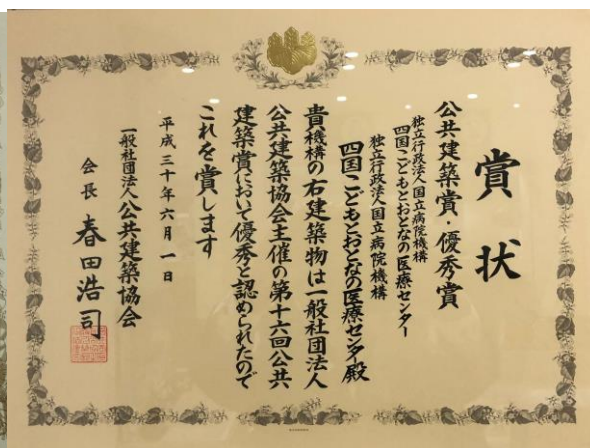 賞状
公共建築賞・優秀賞
独立行政法人国立病院機構
四国こどもとおとなの医療センター
独立行政法人国立病院機構
四国こどもとおとなの医療センター殿
貴機構の右建築物は一般社団法人
公共建築協会主催の第十六回公共
建築賞において優秀と認められたので
これを賞します
平成三十年六月一日
一般社団法人公共建築協会
会長 春田浩司